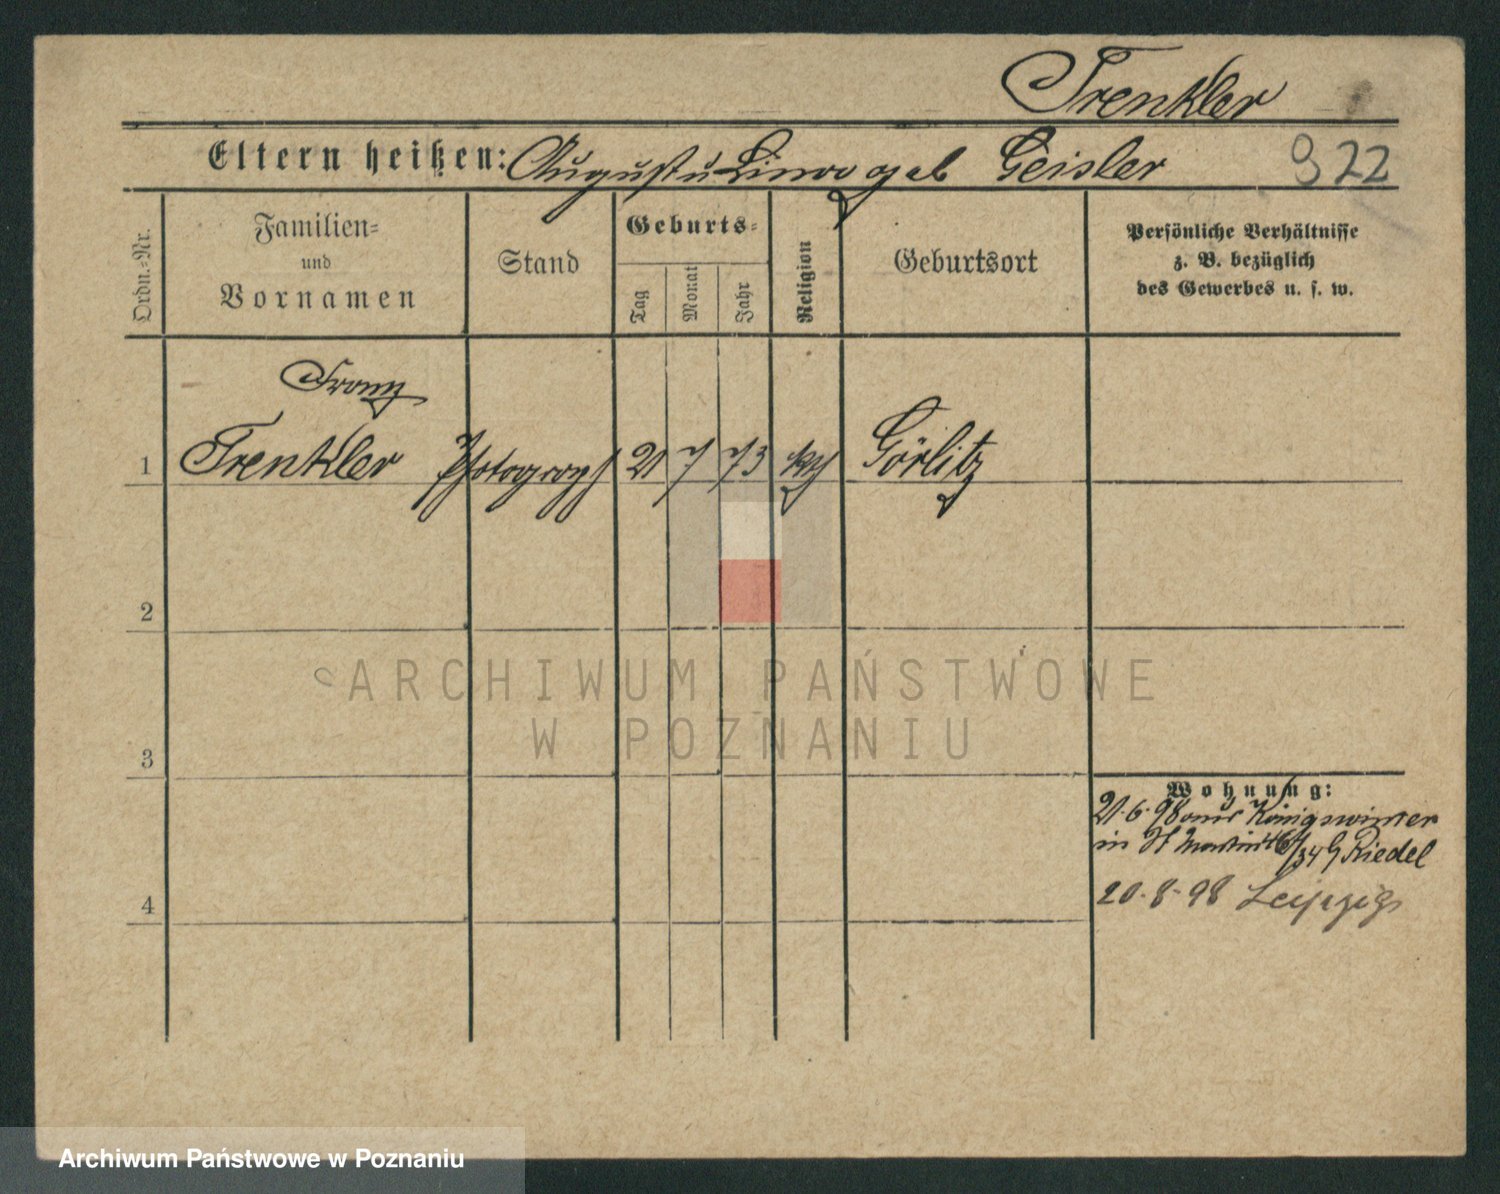 Trenkler
Eltern heißen: August u Lina geb Geisler
922
Ordn.-Nr.
Familien-
und
Vornamen
Stand
Geburts-
Tag
Monat
Jahr
Religion
Geburtsort
Persönliche Verhältnisse
z. B. bezüglich
des Gewerbes u. s. w.
Franz
1 Trenkler Photograph 21 7 73 kth Görlitz
2
3
4
Wohnung:
21.6.98 aus Königswinter
in St Martinst 34 Riedel
20.8.98 Leipzig
ARCHIWUM PAŃSTWOWE
W POZNANIU
Archiwum Państwowe w Poznaniu